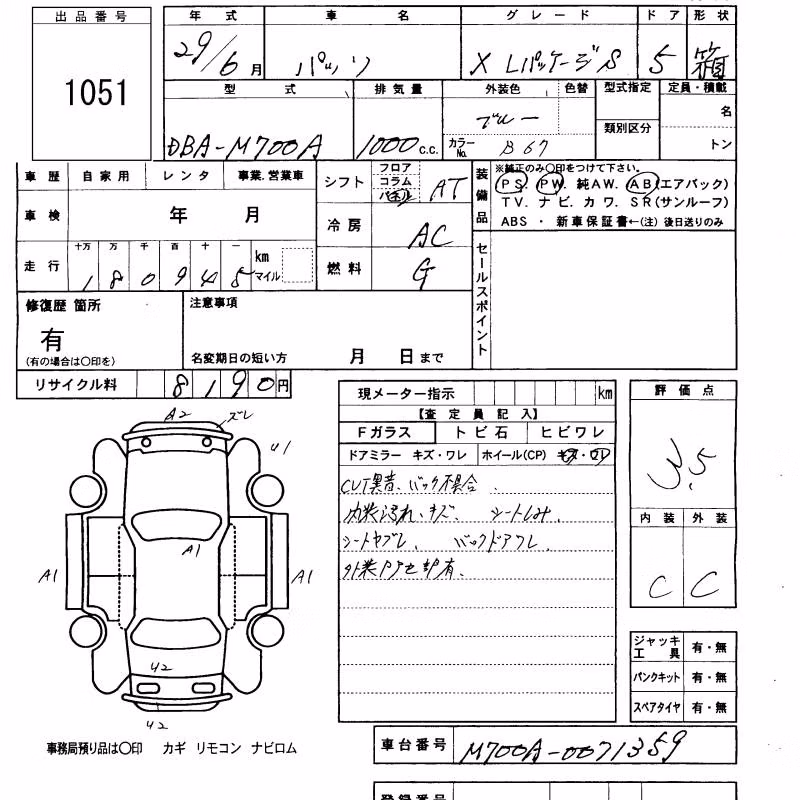 出品番号
1051
年式 車名 グレード ドア 形状
29/6月 パッソ X Lパッケージ S 5 箱
型式 排気量 外装色 色替 型式指定 定員・積載
DBA-M700A 1000 c.c. ブルー 類別区分 名
カラーNo. B67 トン
車歴 自家用 レンタ 事業.営業車
車検 年 月
走行 十万 万 千 百 十 一
1 8 0 9 4 5 km マイル
シフト フロア コラム パネル AT
冷房 AC
燃料 G
装備品 ※純正のみ〇印をつけて下さい。
PS. PW. 純AW. AB(エアバック)
TV. ナビ. カワ. SR(サンルーフ)
ABS ・ 新車保証書←(注) 後日送りのみ
セールスポイント
修復歴 箇所
有
(有の場合は〇印を)
注意事項
名変期日の短い方 月 日まで
リサイクル料 8190円
現メーター指示 km
【査定員記入】
Fガラス トビ石 ヒビワレ
ドアミラー キズ・ワレ ホイール(CP) キズ・ワレ
CVT異音、バック不具合、
内装汚れ、キズ、 シートしみ、
シートヤブレ、 バックドアワレ、
外装
評価点
3.5
内装 外装
C C
A2 ズレ
U1
A1
A1 A1
U2
U2
ジャッキ 工具 有・無
パンクキット 有・無
スペアタイヤ 有・無
事務局預り品は〇印 カギ リモコン ナビロム
車台番号 M700A-0071359
登録番号